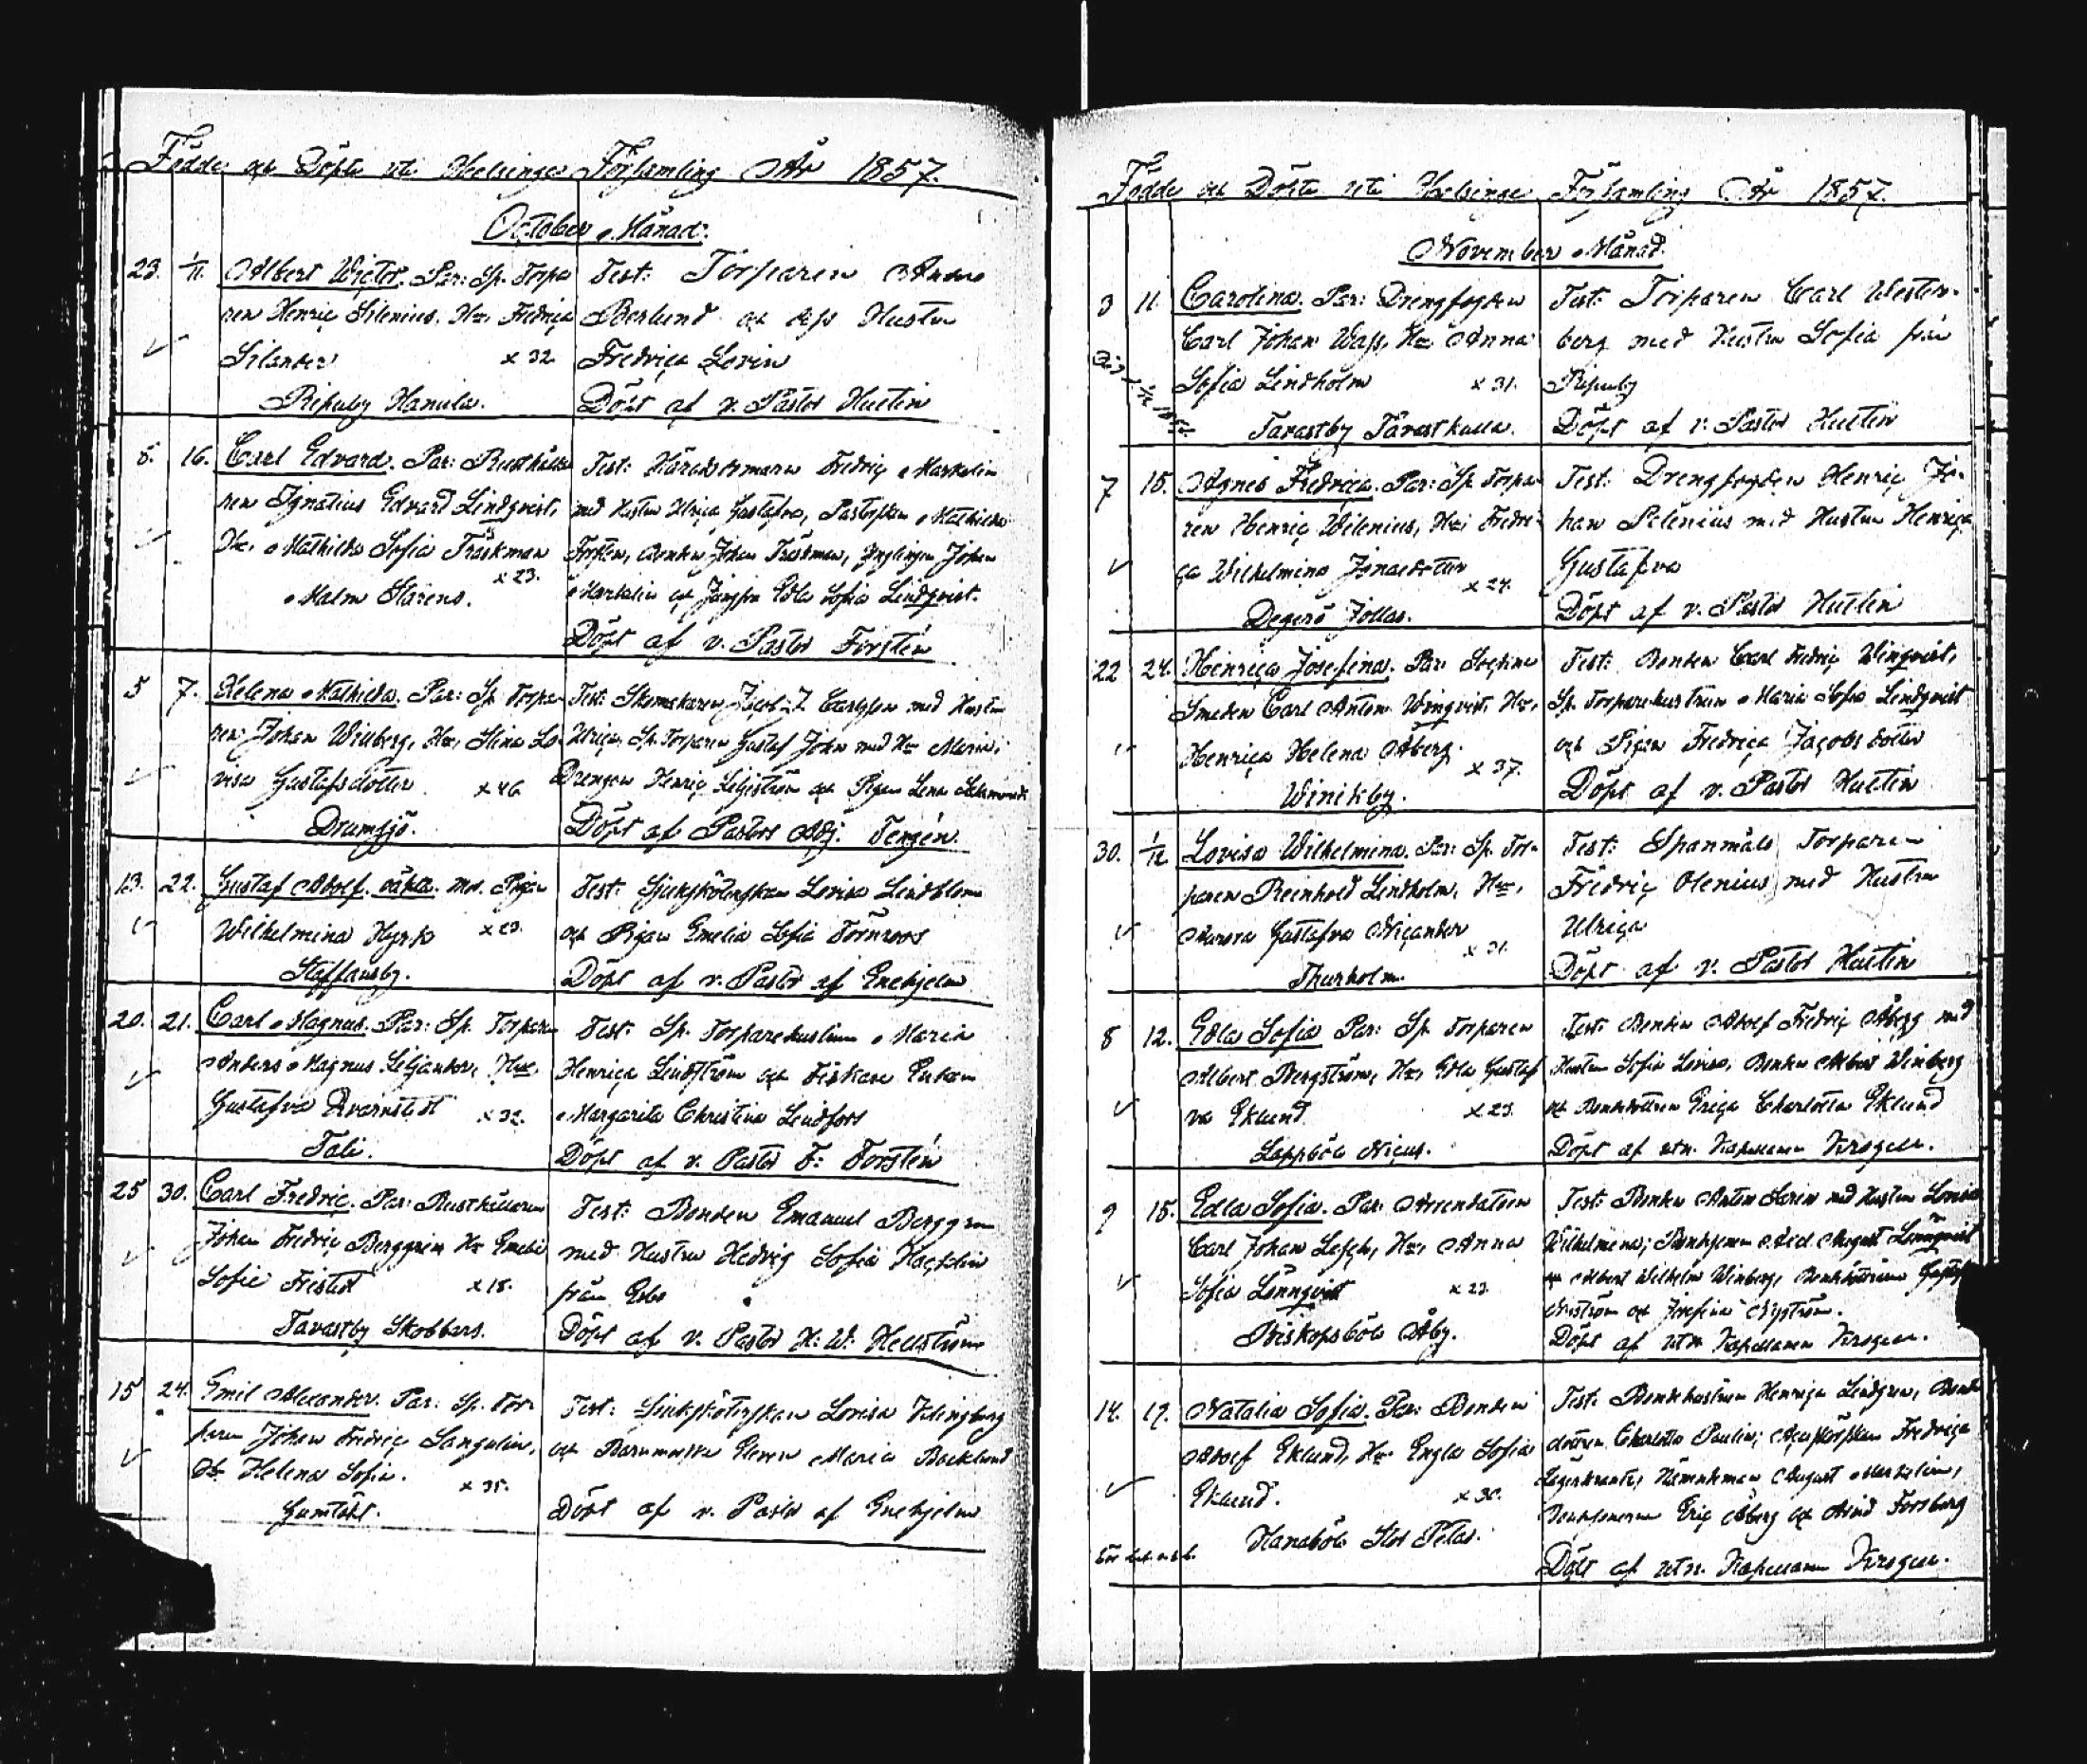 Födde och Döpte uti Helsinge Församling År 1857.
October Månad.
23. 1/11. Albert Victor. Par: Sp. Torpa
ren Henric Silenius, Hu. Fredrica
Silander x 32
Ripuby Hanula.
Test: Torparen Anders
Berlund och dess Hustru
Fredrica Lovin
Döpt af v. Pastor Hustin
8. 16. Carl Edvard. Par: Rusthålla
ren Ignatius Edvard Lindqvist,
Hu. Mathilda Sofia Träskman
x 23.
Malm Stårens.
Test: Häradsdomaren Fredric Markelin
med Hustru Ulrica Gustafva, Pastorskan Mathilda
Forstén, Bonden Johan Träskman, Ynglingen Johan
Markelin och Jungfru Edla Sofia Lindqvist.
Döpt af v. Pastor Forstén
5 7. Helena Mathilda. Par: Sp. Torpa
ren Johan Winberg, Hu. Stina Lo
visa Gustafsdotter x 46
Drumsjö.
Test: Skomakaren Jacob Carlsson med Hustru
Ulrica, Sp. Torparen Gustaf John med Hu Maria;
Drengen Henric Liljeström och Pigan Lena
Döpt af Pastors Adj. Tengén.
13. 22. Gustaf Adolf. oäkta. Mod. Pigan
Wilhelmina Hyrk x 23.
Staffansby.
Test. Sjuksköterskan Lovisa Lindblom
och Pigan Emelia Sofia Törnroos
Döpt af v. Pastor af Enehjelm
20. 21. Carl Magnus. Par: Sp. Torparen
Anders Magnus Liljander, Hu.
Gustafva Qvarnstedt x 32.
Tali.
Test: Sp. Torparehustrun Maria
Henrica Lindström och Fiskare Enkan
Margarita Christina Lindfors
Döpt af v. Pastor F: Forstén
25 30. Carl Fredric. Par: Rusthållaren
Johan Fredric Berggren Hu Emelie
Sofie Fristedt x 18.
Tavastby Skobbars.
Test: Bonden Emanuel Berggren
med Hustru Hedvig Sofia Hacklin
från Esbo
Döpt af v. Pastor H: W: Hellström
15 24. Emil Alexander. Par: Sp. Tor
paren Johan Fredric Sangelin,
Hu. Helena Sofia. x 35.
Gumtäkt.
Test: Sjukskötrskan Lovisa Klingberg
och Barnmorske Eleven Maria Backlund
Döpt af v. Pastor af Enehjelm
Födde och Döpte uti Helsinge Församling År 1857.
November Månad.
3 11. Carolina. Par: Drengfogden
Carl Johan Wass, Hu Anna
Sofia Lindholm x 31.
Tavastby Tavastkulla.
Test: Torparen Carl Wester-
berg med Hustru Sofia från
Ripuby
Döpt af v. Pastor Hustin
7 15. Agnes Fredrica. Par: Sp. Torpa
ren Henric Wilenius, Hu. Fredri
ca Wilhelmina Jonasdotter
x 24.
Degerö Jollas.
Test: Drengfogden Henric Jo-
han Silenius med Hustru Henrica
Gustafva
Döpt af v. Pastor Hustin
22 24. Henrica Josefina. Par: Sockne
Smeden Carl Anton Winqvist, Hu.
Henrica Helena Åberg.
x 37.
Winikby.
Test: Bonden Carl Fredric Winqvist,
Sp. Torparehustrun Maria Sofia Lindqvist
och Pigan Fredrica Jacobsdotter
Döpt af v. Pastor Hustin
30. 1/12 Lovisa Wilhelmina. Par: Sp. Tor-
paren Reinhold Lindholm, Hu.
Aurora Gustafva Nicander
x 31.
Thurholm.
Test: Spanmåls Torparen
Fredric Olenius med Hustru
Ulrica
Döpt af v. Pastor Hustin
8 12. Edla Sofia Par: Sp. Torparen
Albert Bergström, Hu. Edla Gustaf
va Eklund. x 23.
Lappböle Nicus.
Test: Bonden Adolf Fredric Åberg med
Hustru Sofia Lovisa, Bonden Albert Winberg
och Bondedottren Erica Charlotta Eklund
Döpt af utn. Kapellanen Krogell.
9 15. Edla Sofia. Par: Arrendatorn
Carl Johan Lesch, Hu. Anna
Sofia Lönnqvist x 23.
Biskopsböle Åby.
Test: Bonden Anton Sarin med Hustru Lovisa
Wilhelmina; Bondesonen Axel August Lönnqvist
och Albert Wilhelm Winberg, Bondedöttrarne
Nyström och Josefina Nyström.
Döpt af utn. Kapellanen Krogell.
14. 17. Natalia Sofia. Par: Bonden
Adolf Eklund, Hu Engla Sofia
Eklund. x 30.
Kanaböle Stor Pelas.
Test: Bondehustrun Henrica Lindgren, Bonde
dottren Charlotta Paulin; Fredrica
Lagerkrantz, Nämndeman August Markelin,
Bondsonerne Eric Åberg och Arvid Forsberg
Döpt af utn. Kapellanen Krogell.